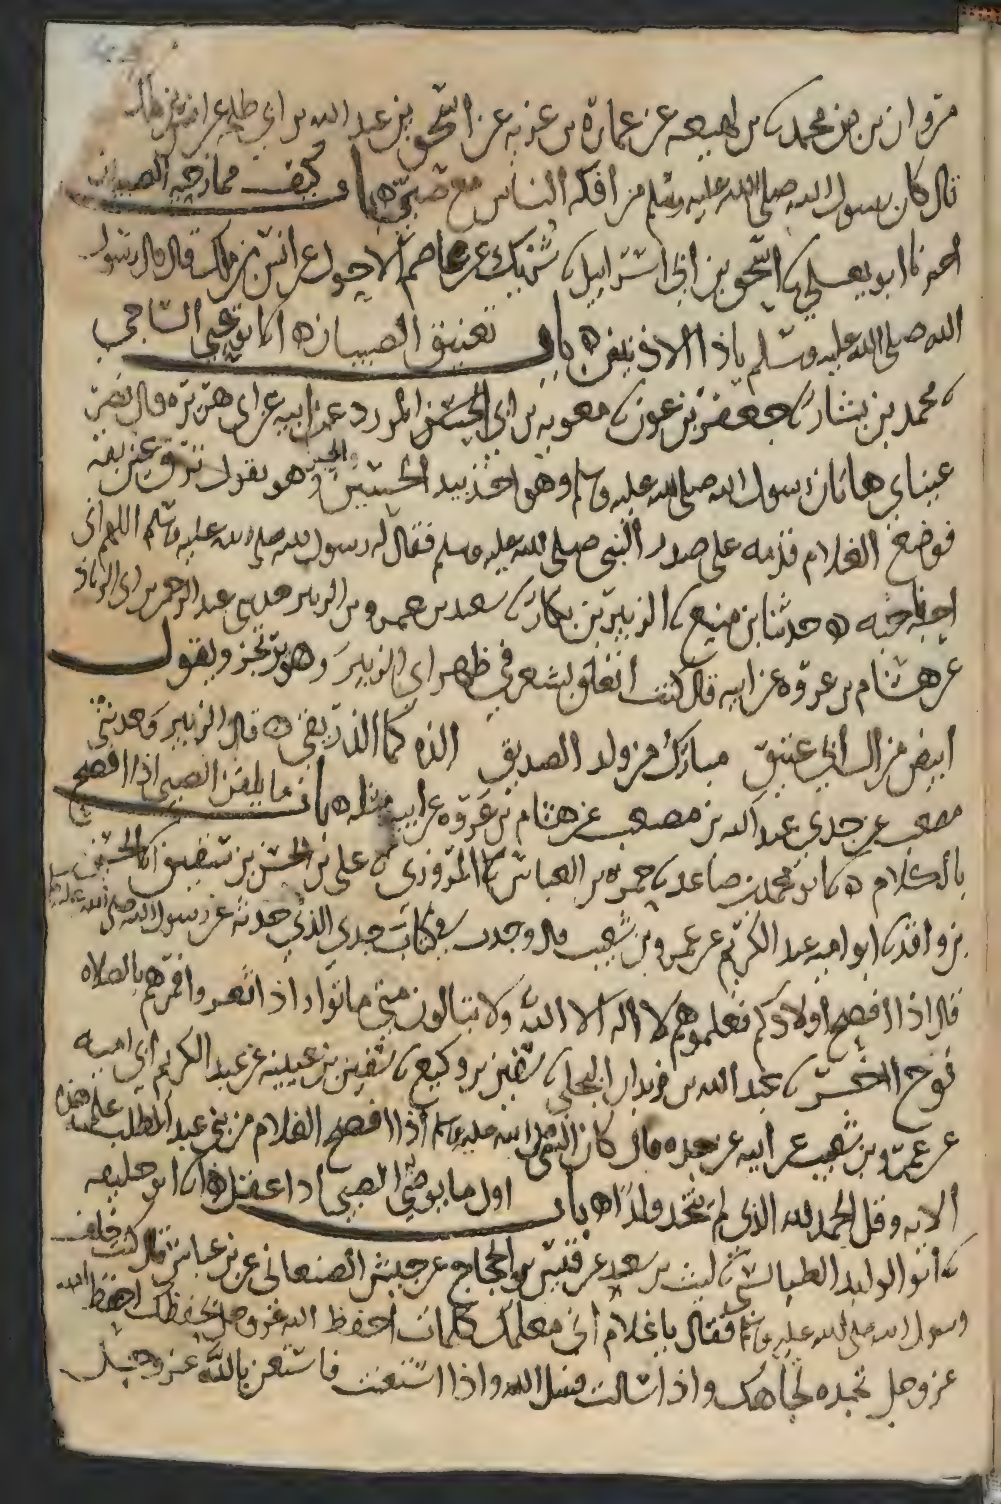 مروان بن محمد بن لهيعه عن عمارة بن غزيه عن اسحق بن عبد الله بن ابي طلحه عن انس بن مالك
قال كان رسول الله صلى الله عليه وسلم من افكه الناس مع صبي ه باب كيف ممازحة الصبيان
اخبرنا ابو يعلي اسحق بن ابي اسرائيل شريك عن عاصم الاحول عن انس بن مالك قال قال رسول
الله صلى الله عليه وسلم ياذا الاذنين ه باب تعنيق الصبيان ه انا بو يحيى الساجي
محمد بن بشار جعفر بن عون معويه بن ابي المزرد عن ابيه عن ابي هريره قال بصر
عيناي هاتان رسول الله صلى الله عليه وسلم وهو اخذ بيد الحسن والحسين وهو يقول ترق عين بقه
فوضع الغلام قدمه على صدر النبي صلى الله عليه وسلم فقال له رسول الله صلى الله عليه وسلم اللهم اني
احبه فاحبه ه حدثنا بن منيع الزبير بن بكار سعيد بن عمرو بن الزبير حدثني عبد الرحمن بن ابي الزناد
عن هشام بن عروة عن ابيه قال كنت اتعلق بشعر في ظهر ابي الزبير وهو يرتجز ويقول
ابيض من ال ابي عتيق مبارك من ولد الصديق الذه كما الذ ريقي ه قال الزبير وحدثني
مصعب عن جدي عبد الله بن مصعب عن هشام بن عروة عن ابيه مثله ه باب ما يلقن الصبي اذا افصح
بالكلام ه انا بو محمد بن صاعد حمزه بن العباس المروزي علي بن الحسن بن شقيق انا الحسين
بن واقد ابو اميه عبد الكريم عن عمرو بن شعيب قال وجدت في كتاب جدي الذي حدثه عن رسول الله صلى الله عليه وسلم
قال اذا افصح اولادكم فعلموهم لا اله الا الله ولا تبالون متى ماتوا واذا اثغروا فمرهم بالصلاه
عبد الله بن البجلي سفين بن وكيع سفين بن عيينه عن عبد الكريم ابي اميه
عن عمرو بن شعيب عن ابيه عن جده قال كان النبي صلى الله عليه وسلم اذا افصح الغلام من بني عبد المطلب علمه هذه
الايه وقل الحمد لله الذي لم يتخذ ولدا ه باب اول ما يوصي الصبي اذا عقل ه ابو خليفه
ابو الوليد الطيالسي ليث بن سعد عن قيس بن الحجاج عن حبيش الصنعاني عن بن عباس قال كنت خلف
رسول الله صلى الله عليه وسلم فقال يا غلام اني معلمك كلمات احفظ الله عز وجل يحفظك احفظ الله
عز وجل تجده تجاهك واذا سالت فسل الله واذا استعنت فاستعن بالله عز وجل